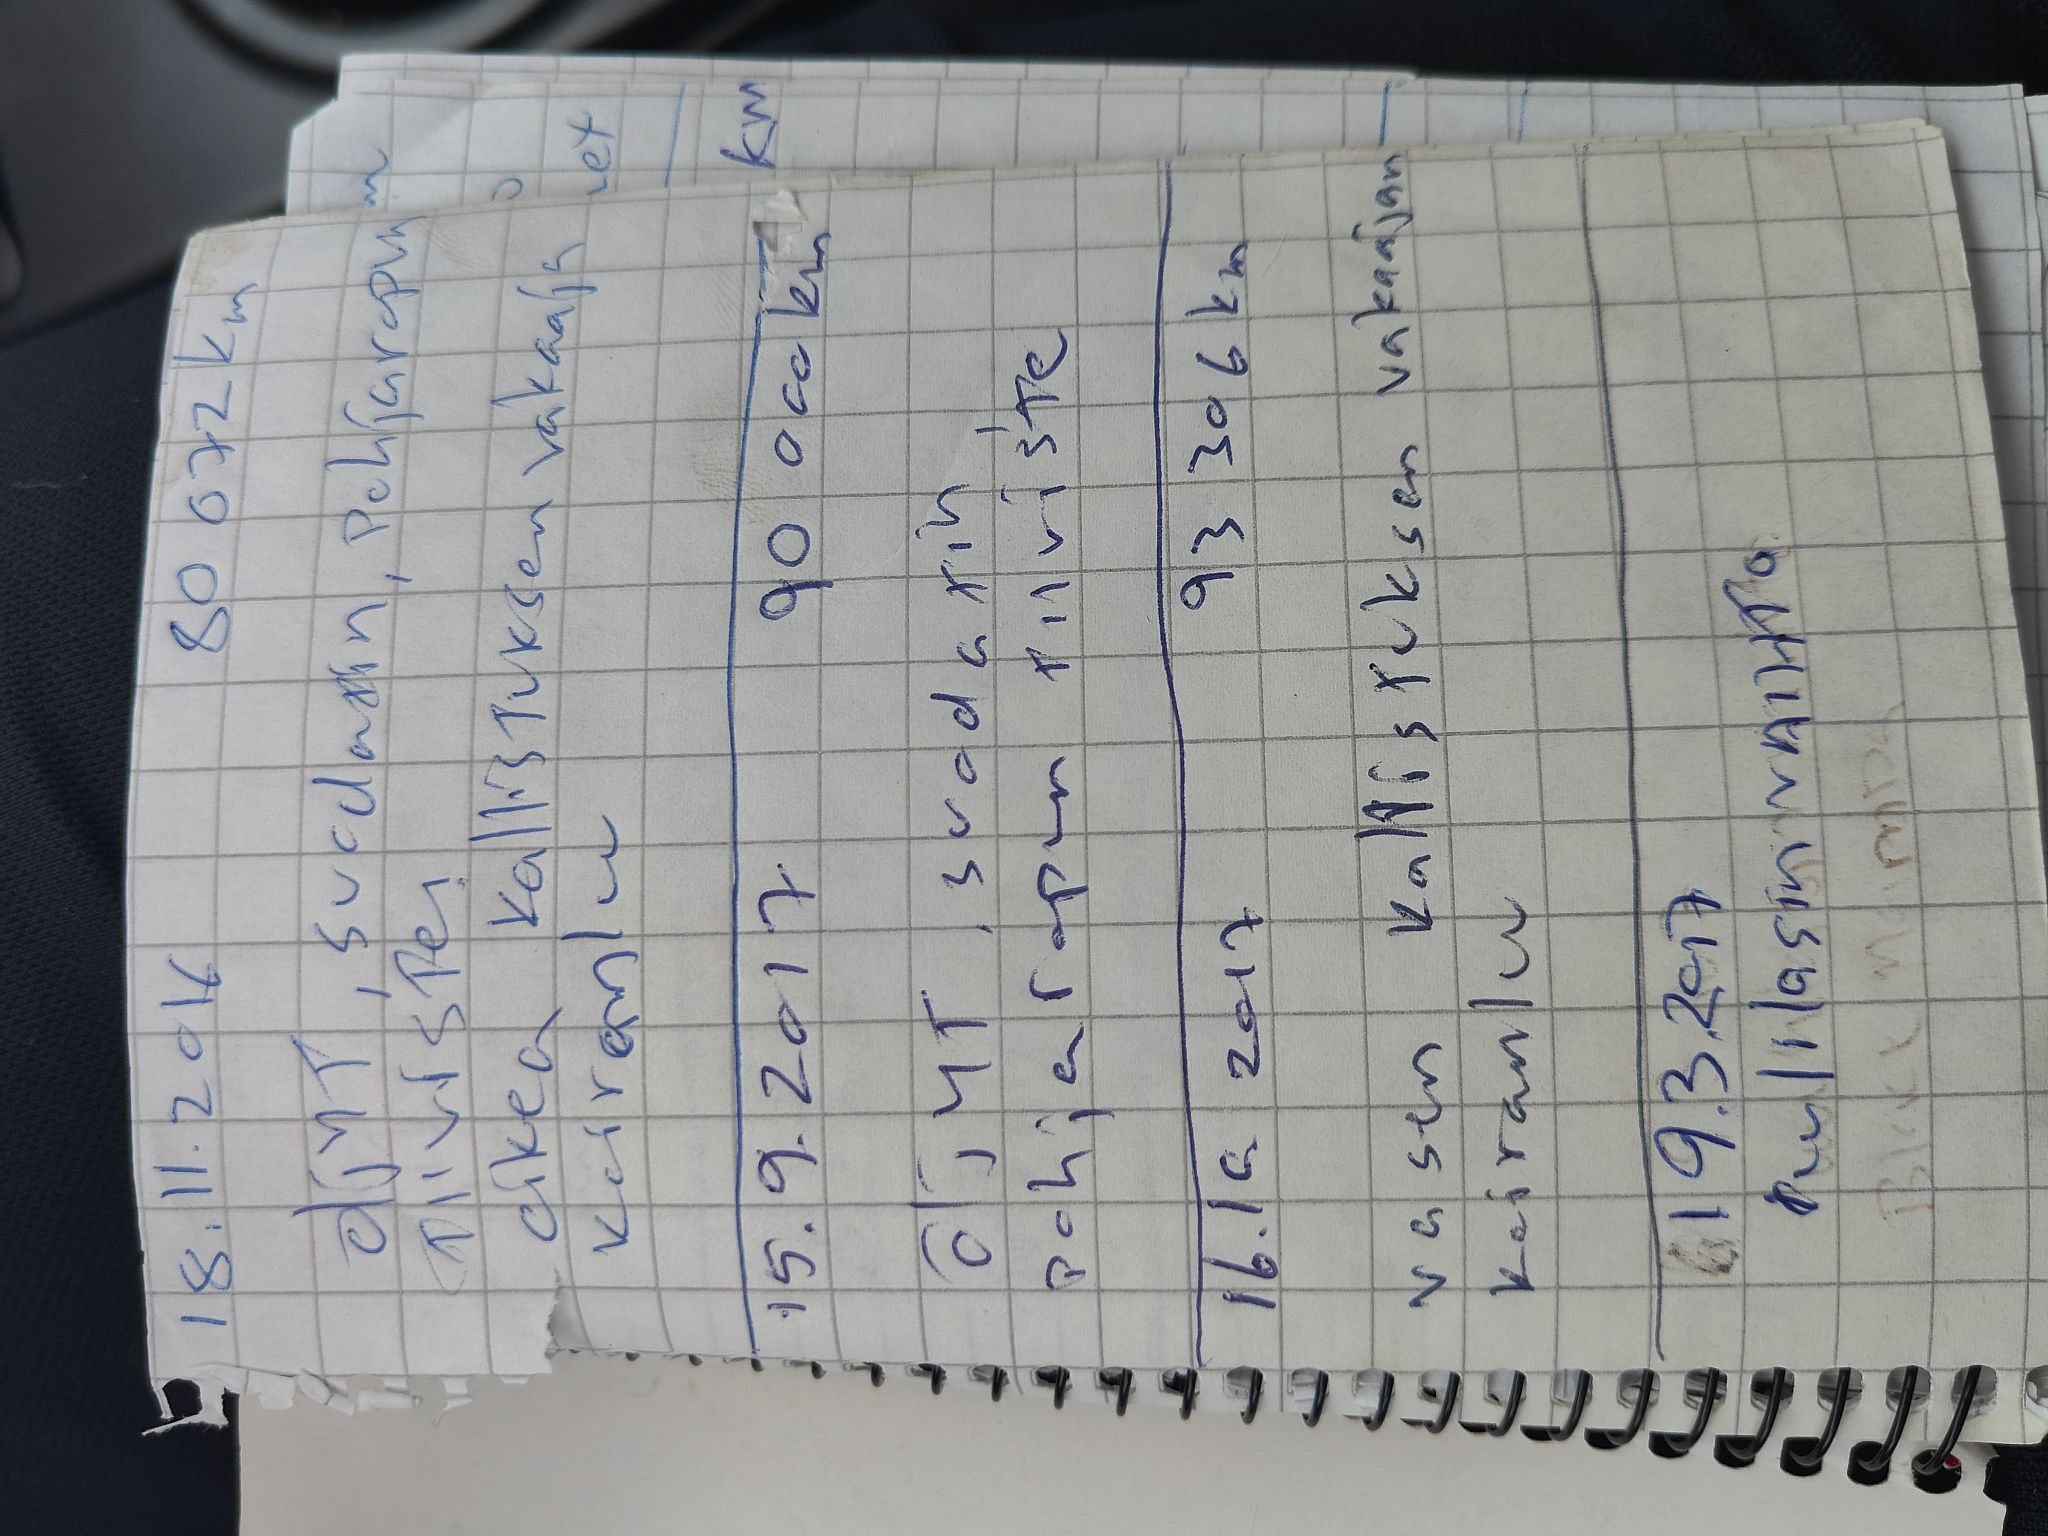 18.11.2016 80 072 km
öljyT, suodatin, pohjarapun
Tiiviste,
oikea kallisTuksen vakaaja
koiranluu
15.9.2017 90 000 km
öljyT, suodatin
pohjarapun tiivisTe
16.10 2017 93 306 km
vasen kallistuksen vakaajan
koiranluu
19.3.2017
Tuulilasin vAIHTo
km